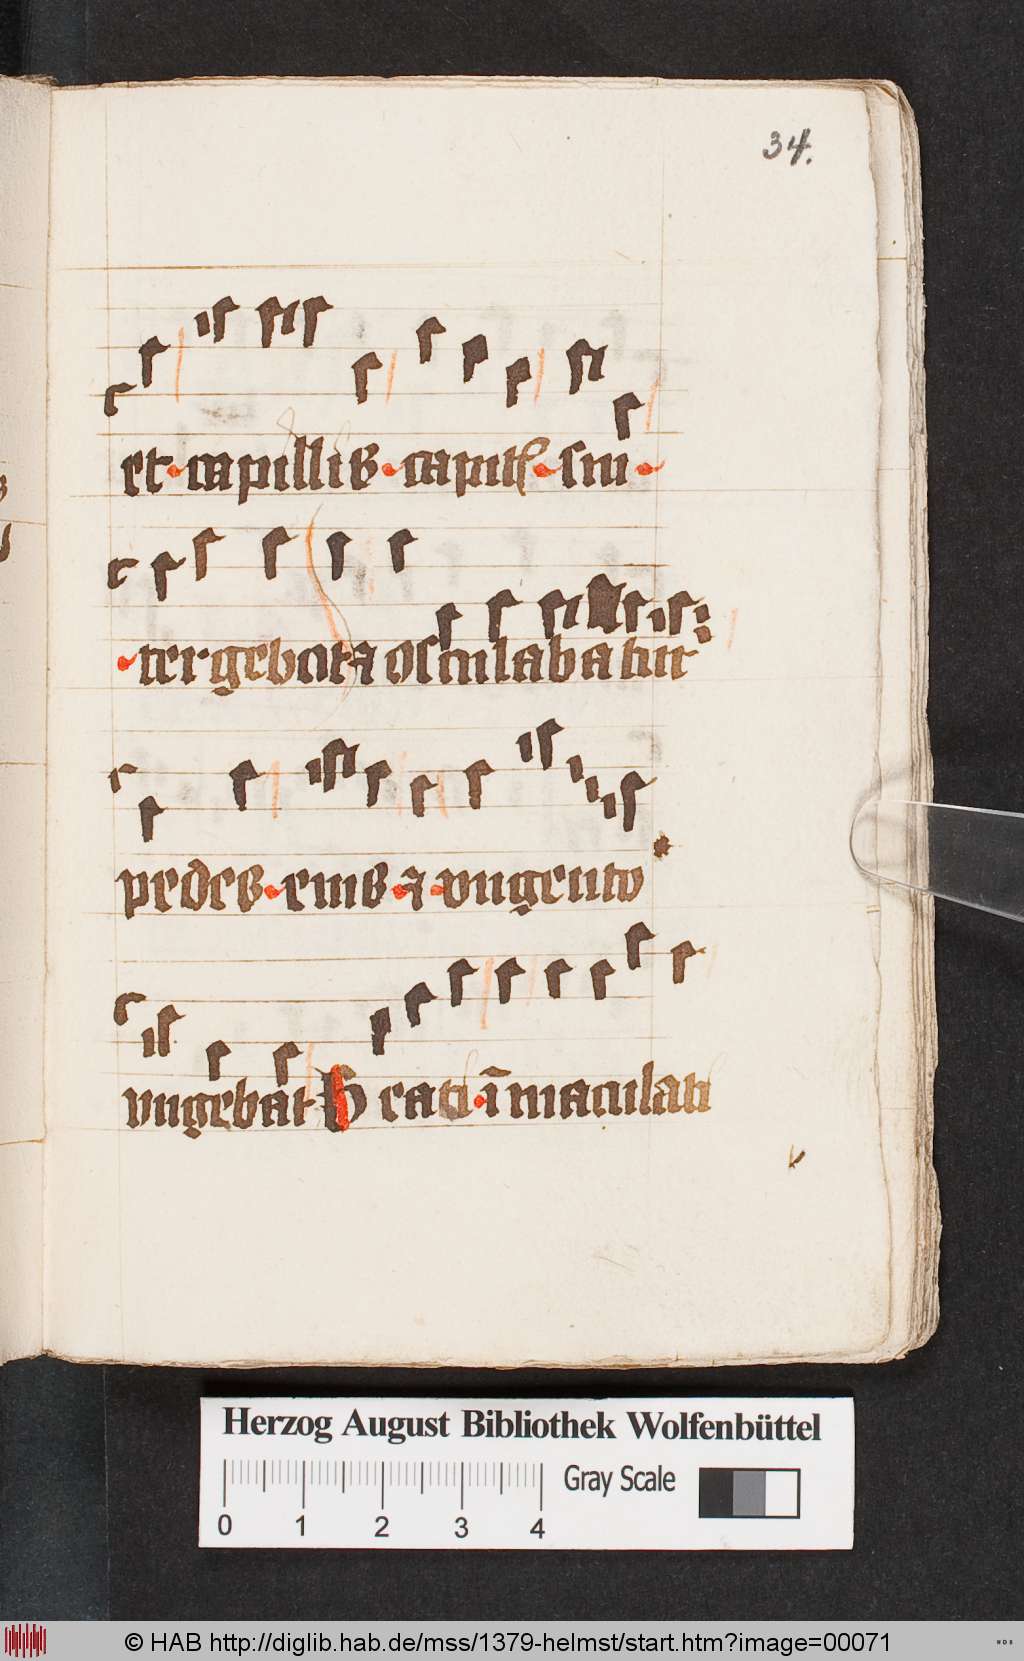 34.
et capillis capitꝭ sui
tergebat ⁊ osculabatur
pedes eius ⁊ vngento
vngebat H cati īmaculati
v
Herzog August Bibliothek Wolfenbüttel
0 1 2 3 4 Gray Scale
© HAB http://diglib.hab.de/mss/1379-helmst/start.htm?image=00071